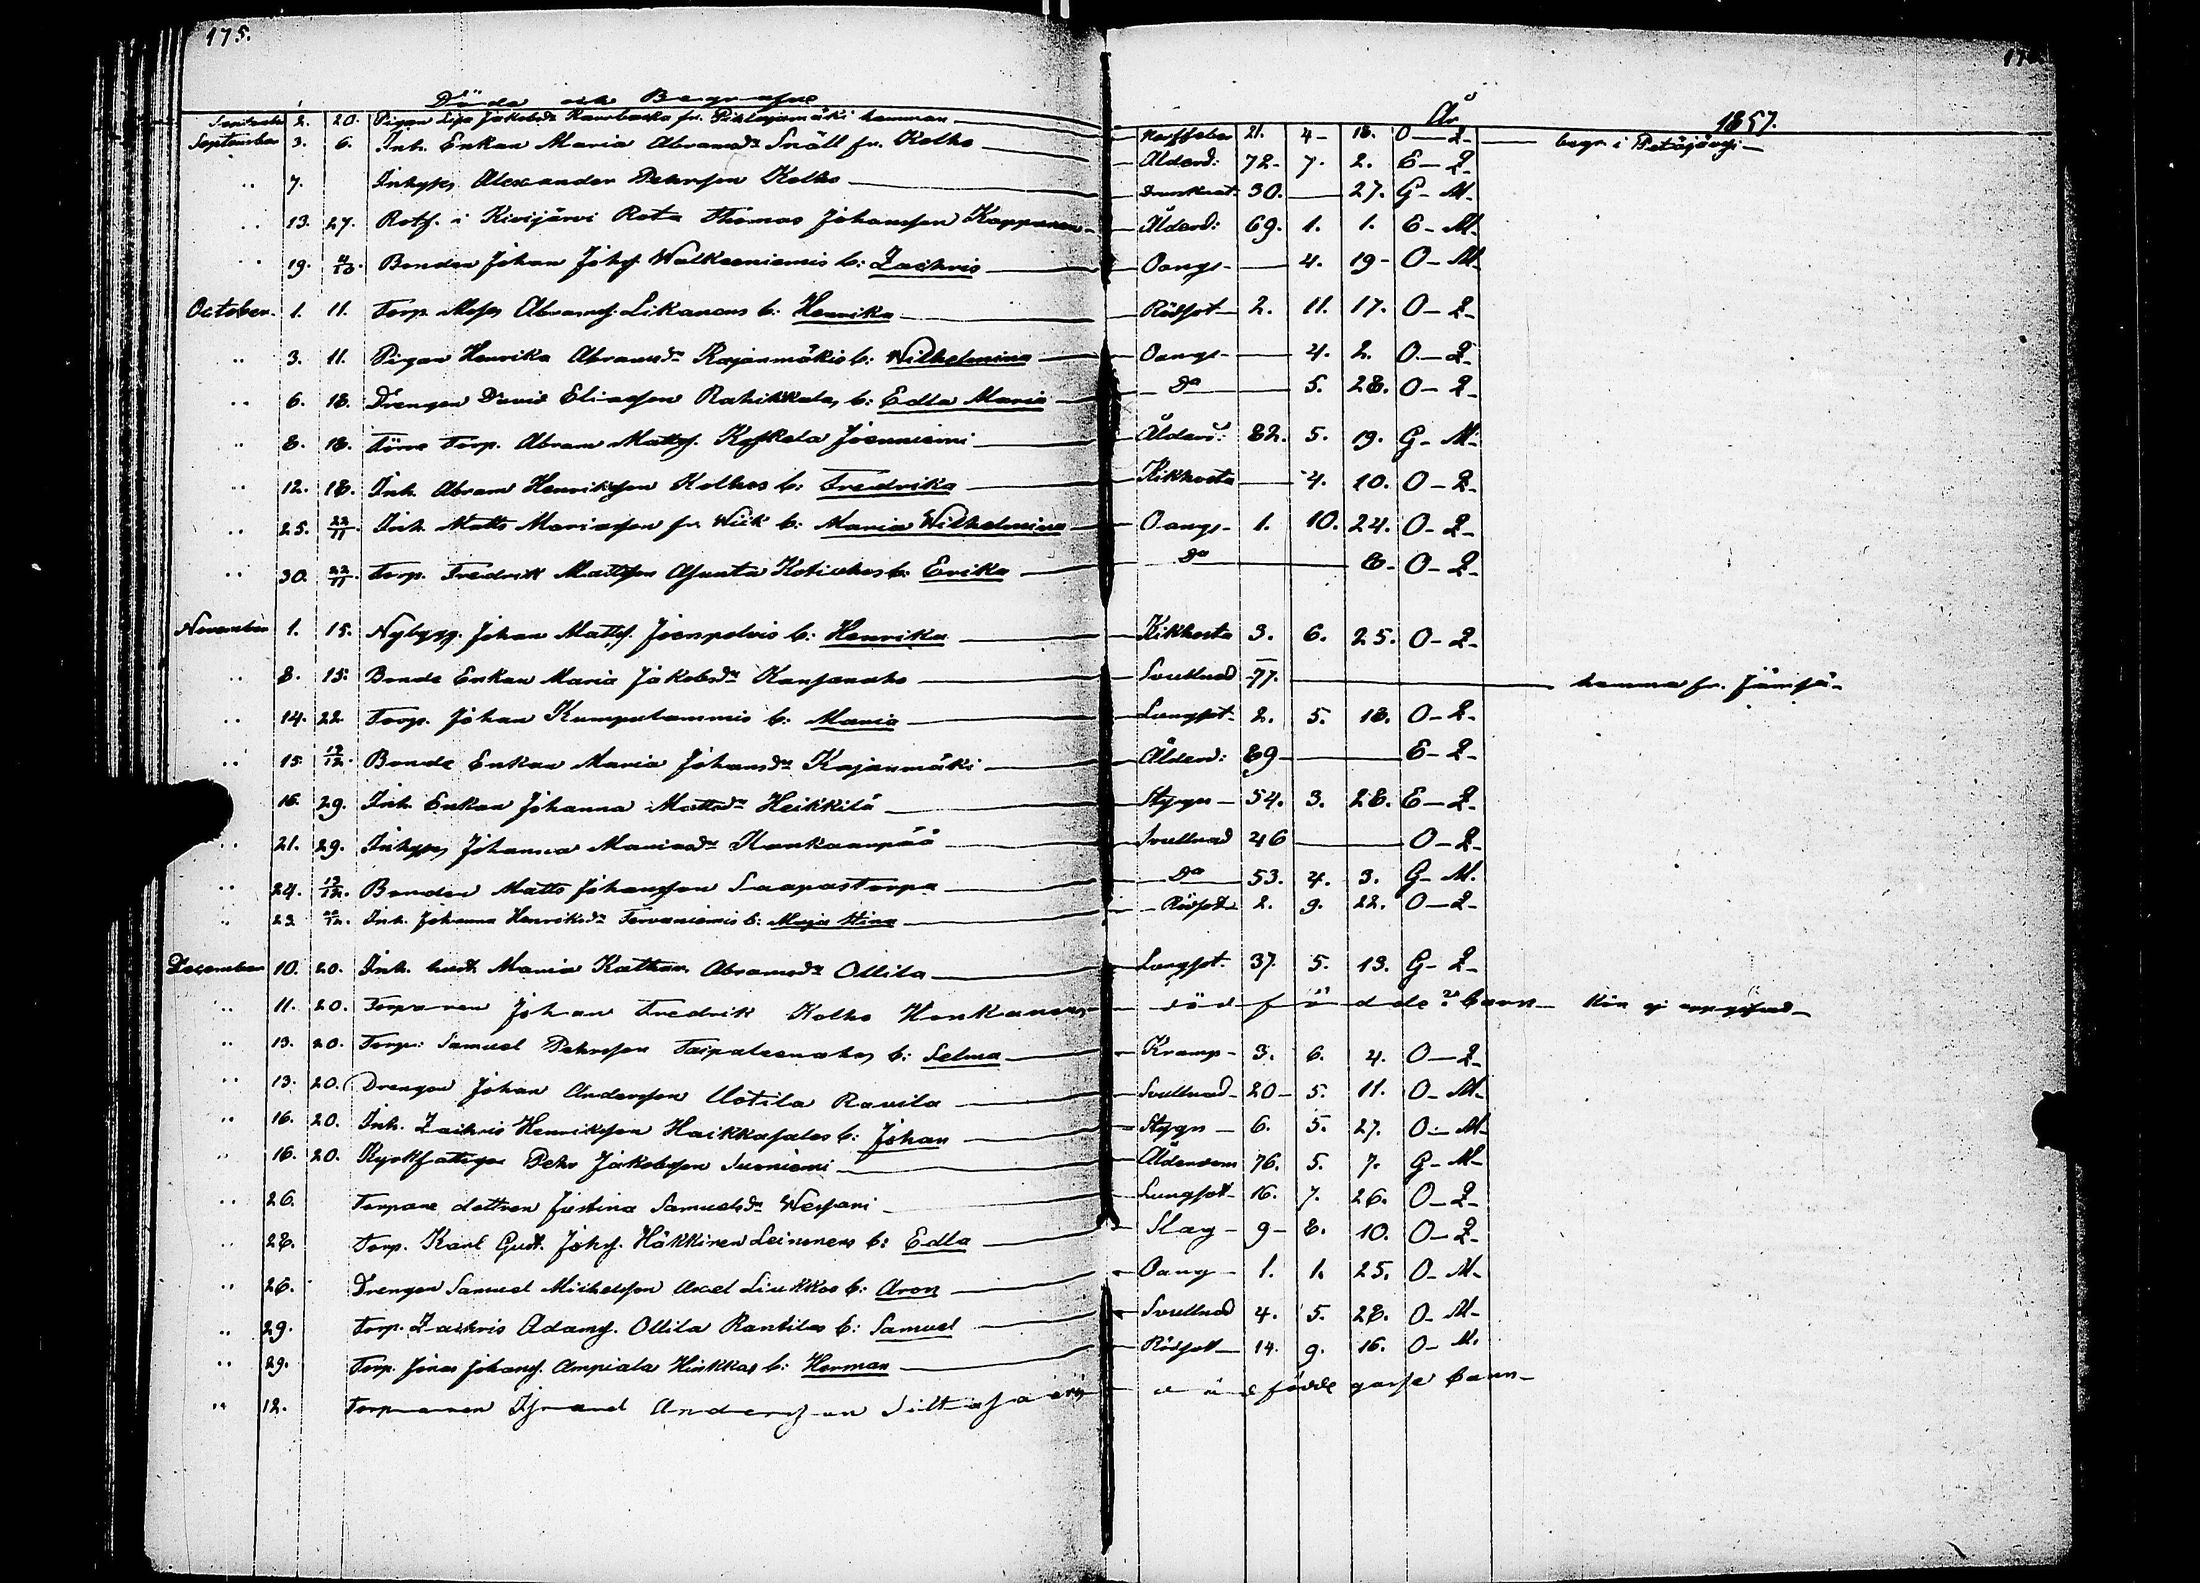 175.
Döde och Begrafne
År 1857.
September 2. 20. Pigan Lisa Jakobsdr fr. Pihlajamäki hemman Nerffeber 21. 4 18. O Q begr. i Petäjävesi
September 3. 6. Inh. Enkan Maria Abramsdr Snäll fr. Kolho Ålderd: 72. 7. 2. E Q
" 7. Inhyses Alexander Petersson Kolho 30. 27. G M.
" 13. 27. Rotf. i Kivijärvi Rota Thomas Johansson Kopponen Ålderd: 69. 1. 1. E M.
" 19. 4/10. Bonden Johan Johss. Walkeeniemis b: Zachris Oangs 4. 19 O M.
October 1. 11. Torp. Moses Abramss. Likanens b: Henrika Rödsot 2. 11. 17. O Q
" 3. 11. Pigan Henrika Abramsdr Kajanmäkis b: Wilhelmina Oangs 4. 2. O Q
" 6. 18. Drengen David Eliasson Rahikkala, b: Edla Maria Do 5. 28. O Q
" 8. 18. Förre Torp. Abram Matts. Koskela Joenniemi Ålderd: 82. 5. 19. G M.
" 12. 18. Inh. Abram Henriksson Kolhos b: Fredrika Kikhosta 4. 10. O Q
" 25. 22/11. Inh. Matts Mariasson fr. Wiik b: Maria Wilhelmina Oangs 1. 10. 24. O Q
" 30. 22/11. Torp. Fredrik Mattsson Asunta b: Erika Do 8. O Q
November 1. 15. Nybygg. Johan Matts. Joenpolvis b: Henrika Kikhosta 3. 6. 25. O Q
" 8. 15. Bonde Enkan Maria Jakobsdr Kansanaho Svullnad 77. hemma fr. Jämsä
" 14. 22. Torp. Johan Kumpulammis b: Maria Lungsot 2. 5. 18. O Q
" 15. 13/12. Bonde Enkan Maria Johansdr Kajanmäki Ålderd: 89 E Q
" 16. 29. Inh. Enkan Johanna Mattsdr Heikkilä Styng 54. 3. 28. E Q
" 21. 29. Inhyses Johanna Mariasdr Kankaanpää Svullnad 46 O Q
" 24. 13/12. Bonden Matts Johansson Saapastorpa Do 53. 4. 3. G M.
" 23 /12. Inh. Johanna Henriksdr Tervaniemis b: Maja Stina Rödsot 2. 9. 22. O Q
December 10. 20. Inh. hust. Maria Kathar. Abramsdr Ollila Lungsot 37. 5. 13. G Q
" 11. 20. Torparen Johan Fredrik Kolho Honkanens dödfödde barn Kön ej uppgifvet
" 13. 20. Torp: Samuel Petersson Taipaleenahos b: Selma Kramp 3. 6. 4. O Q
" 13. 20. Drengen Johan Andersson Uotila Ravila Svullnad 20 5. 11. O M.
" 16. 20. Inh. Zachris Henriksson Haikkasalos b: Johan Styng 6. 5. 27. O M
" 16. 20. Kyrkfattige Petr Jakobsson Suoniemi Ålderdom 76. 5. 7. G M
" 26. Torpare dottren Justina Samuelsdr Lungsot 16. 7. 26. O Q
" 28. Torp. Karl Gust. Johss. Häkkinen Leinonens b: Edla Slag 9 8. 10. O Q
" 26. Drengen Samuel Michelsson Axel Liukkos b: Aron Oang 1. 1. 25. O M.
" 29. Torp. Zachris Adams. Ollila Rantilas b: Samuel Svullnad 4. 5. 28. O M
" 29. Torp. Jonas Johans. Ampiala Hinkkas b: Herman Rödsot 14. 9. 16. O M.
" 12. Torparen Israel Andersson dödfödde gosse barn